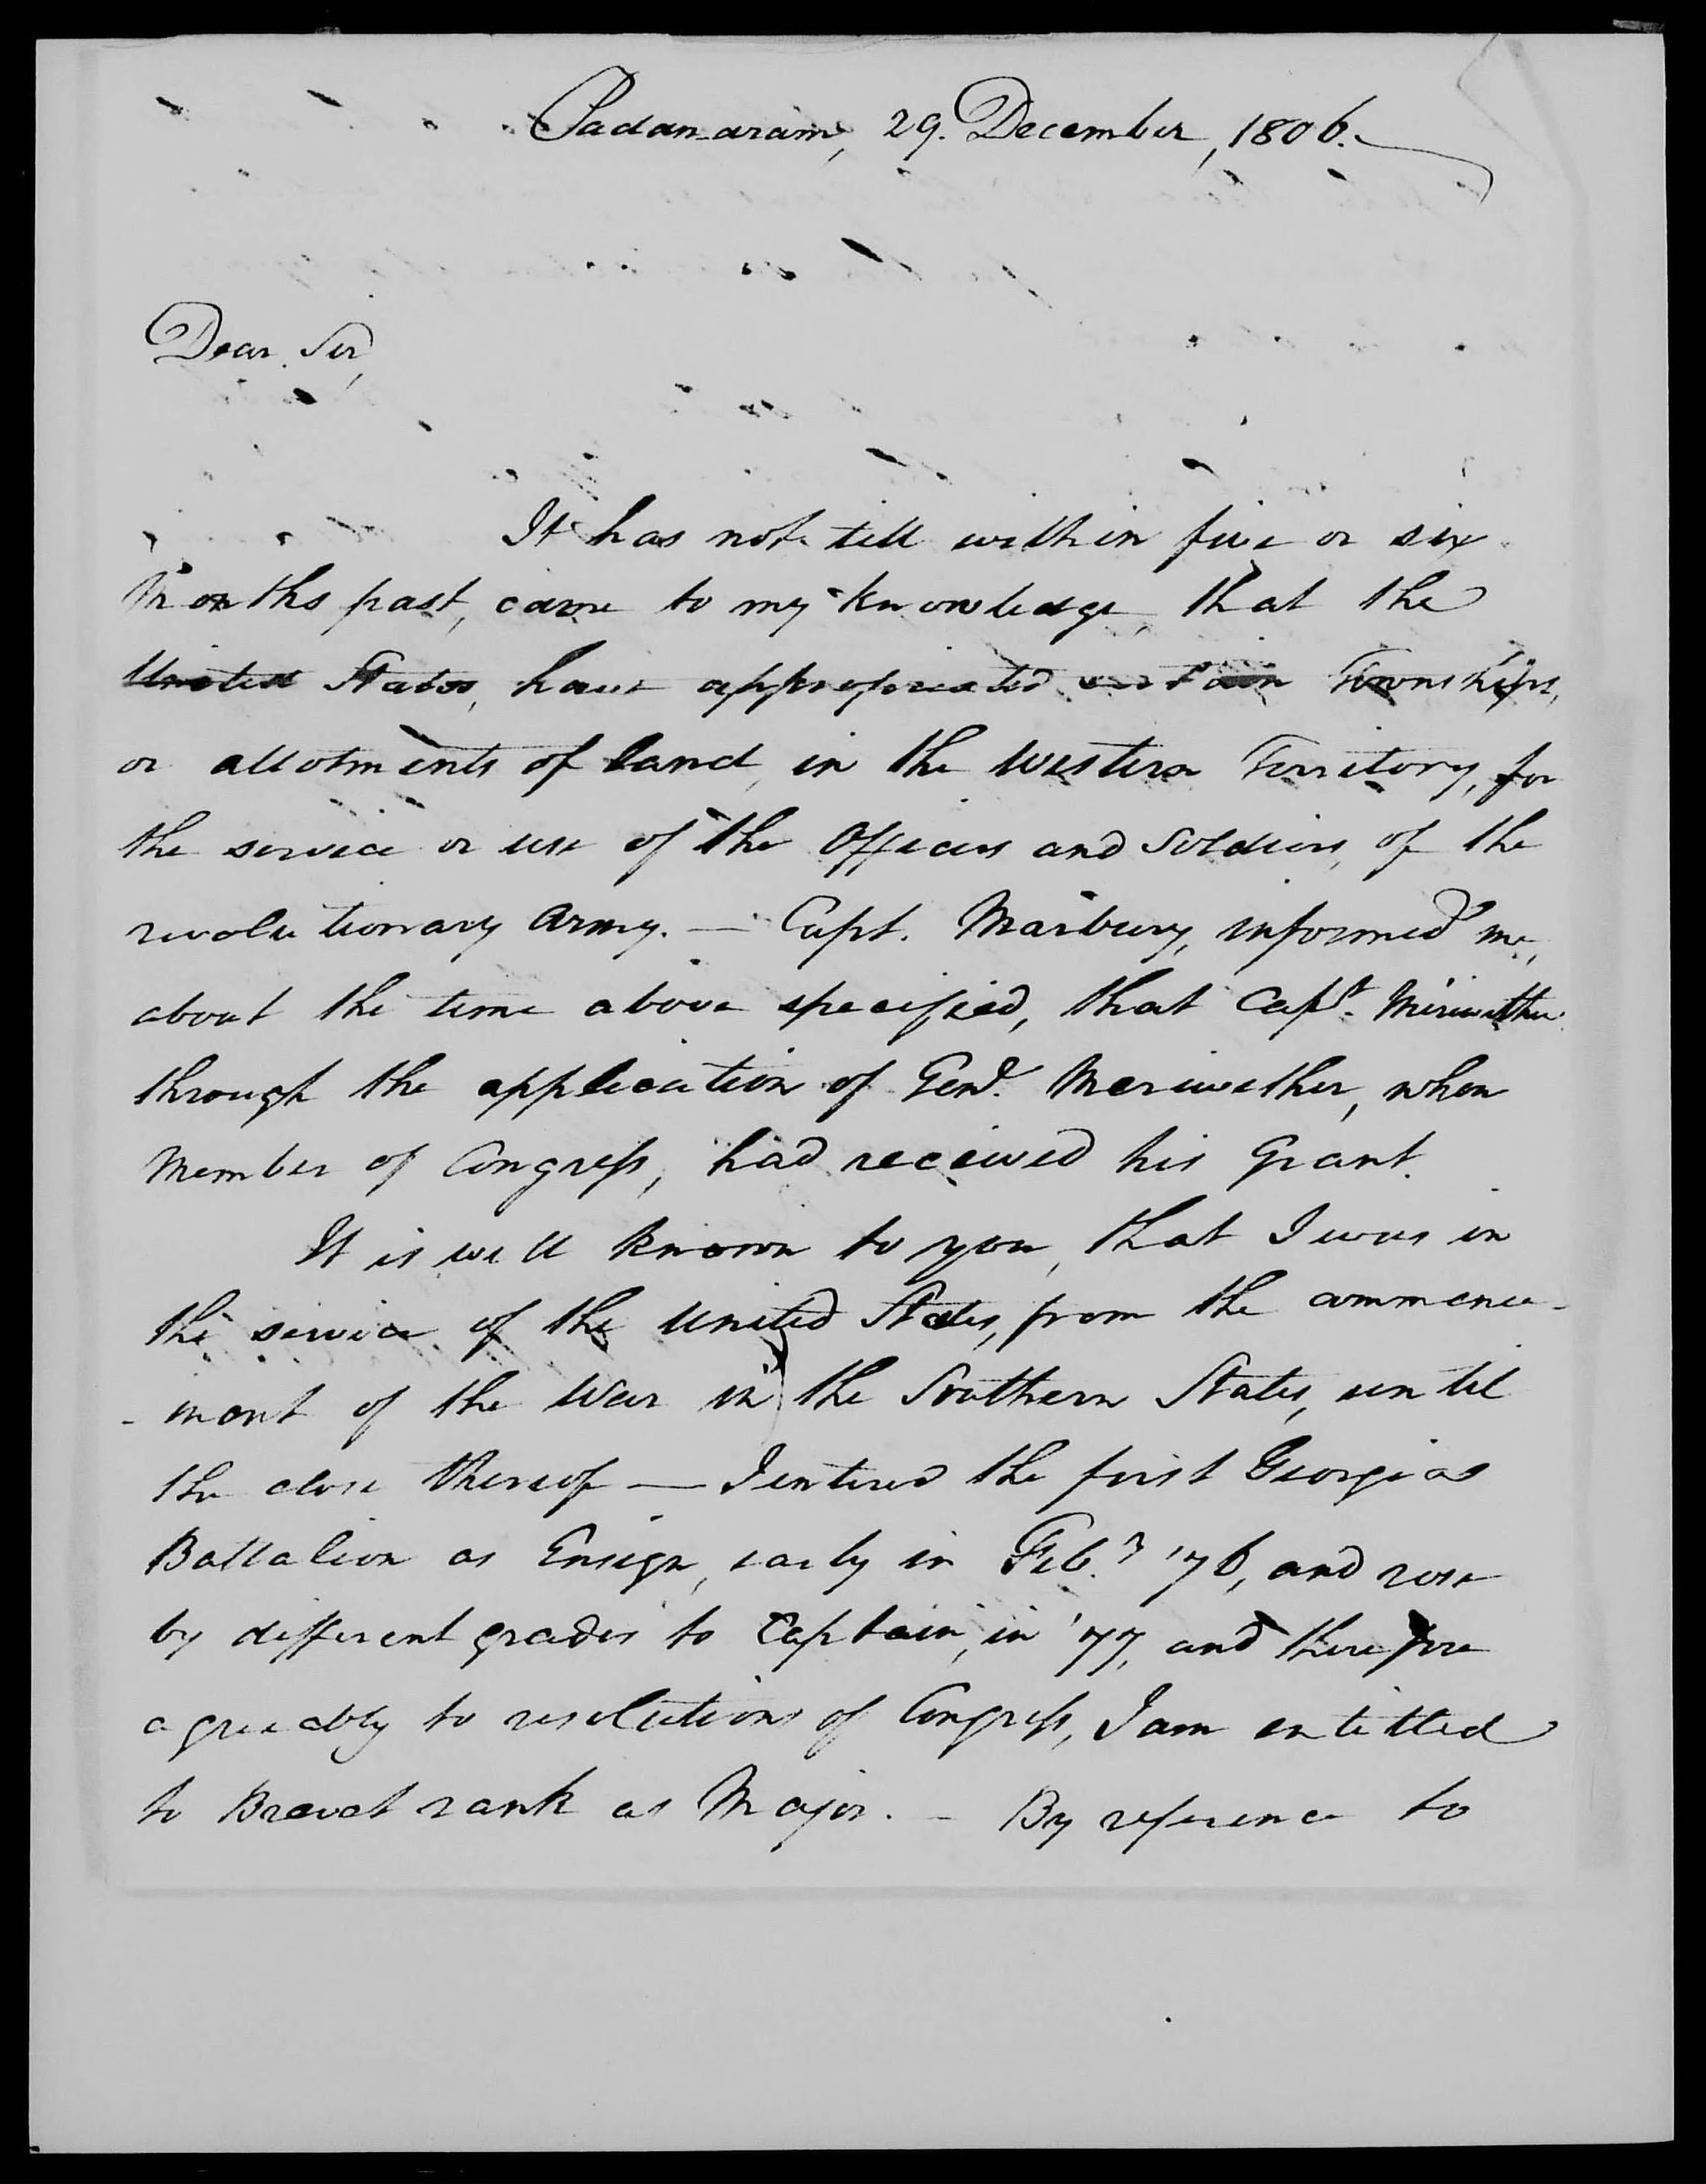 Padan-aram, 29. December, 1806.
Dear Sir,
It has not till within five or six
Months past, came to my knowledge, that the
United States, have appropriated certain Townships,
or allotments of land, in the Western Territory, for
the service or use of the Officers and Soldiers, of the
revolutionary Army. — Capt. Marbury, informed me,
about the time above specified, that Capt. Meriwether
through the application of Genl. Meriwether, when
Member of Congress, had received his Grant.
It is well known to you, that I was in
the service of the United States, from the commence-
-ment of the War in the Southern States, until
the close thereof — I entered the first Georgia
Battalion as Ensign, early in Feby. '76, and rose
by different grades to Captain, in '77, and therefore
agreeably to resolutions of Congress, I am entitled
to Brevet rank as Major. — By reference to